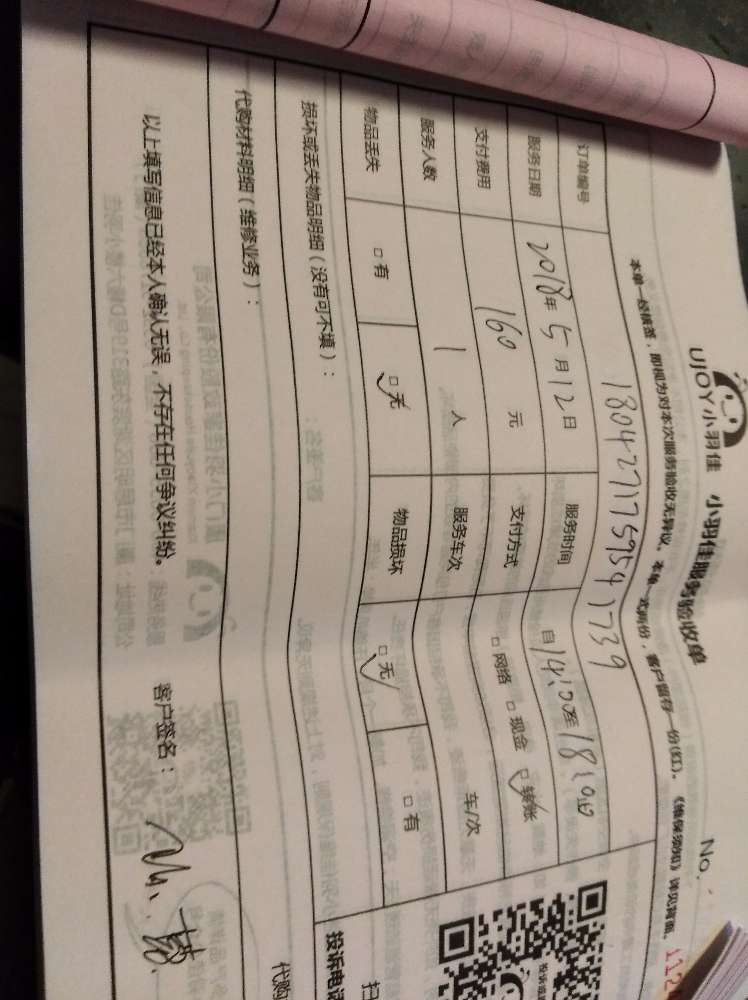 UJOY小羽佳 小羽佳服务验收单 No.
本单一经核签,即视为对本次服务验收无异议。本单一式两份,客户留存一份(红)。《维保须知》详见背面。
订单编号
服务日期 2018年5月12日 服务时间 自14:00至18:00
支付费用 160 元 支付方式 □网络 □现金 □转账
服务人数 1 人 服务车次 车/次
物品丢失 □有 □无 物品损坏 □无 □有
损坏或丢失物品明细(没有可不填):
代购材料明细(维修业务):
以上填写信息已经本人确认无误,不存在任何争议纠纷。 客户签名:
投诉电话
代购